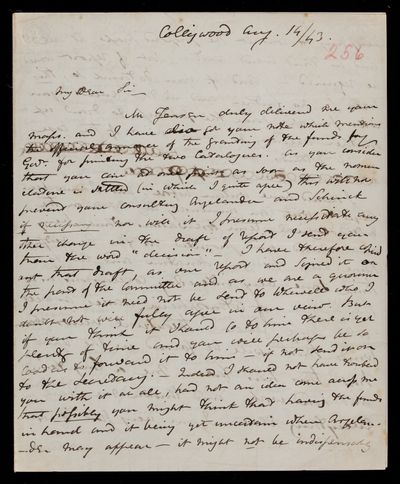 Collingwood Aug. 14/43.
256
My Dear Sir
Mr Jensen duly delivered me your
maps. and I have also got your note which mentions
of the granting of the funds by
Govt. for printing the two Catalogues. As you consider
that you can as soon as the nomen
clature is settled (in which I quite agree) this will not
prevent your consulting Argelander and Schenck
if necessary nor will it I presume necessitate any
other change in the draft of report I send you
than the word "decision" — I have therefore
that draft, as our report and signed it on
the part of the Committee and as we are a quorum
I presume it need not be sent to Whewell who I
doubt not will fully agree in our view. But
if you think it should go to him there is yet
plenty of time and you will perhaps be so
good as to forward it to him — if not send it on
to the Secretary. Indeed I should not have troubled
you with it at all, had not an idea come across me
that possibly you might think that having the funds
in hand and it being yet uncertain when Argelan-
-der may appear — it might not be indispensable